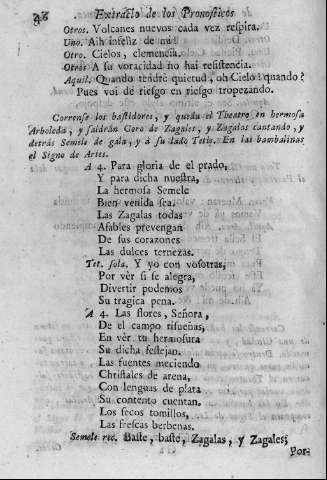 48 Extracto de los Pronosticos
Otros. Volcanes nuevos cada vez respira.
Uno. Aih infeliz de mi!
Otro. Cielos, clemencia.
Otros A su voracidad no hai resistencia.
Aquil. Quando tendrè quietud, oh Cielo! quando?
Pues voi de riesgo en riesgo tropezando.
Corrense los bastidores, y queda el Theatro en hermosa
Arboleda, y saldràn Coro de Zagales, y Zagalas cantando, y
detràs Semele de gala, y à su lado Tetis. En las bambalinas
el Signo de Aries.
A 4. Para gloria de el prado,
Y para dicha nuestra,
La hermosa Semele
Bien venida sea.
Las Zagalas todas
Afables prevengan
De sus corazones
Las dulces ternezas.
Tet. sola. Y yo con vosotras,
Por vèr si se alegra,
Divertir podemos
Su tragica pena.
A 4. Las flores, Señora,
De el campo risueñas,
En vèr tu hermosura
Su dicha festejan.
Las fuentes meciendo
Christales de arena,
Con lenguas de plata
Su contento cuentan.
Los secos tomillos,
Las frescas berbenas.
Semele rec. Baste, baste, Zagalas, y Zagales;
Por-